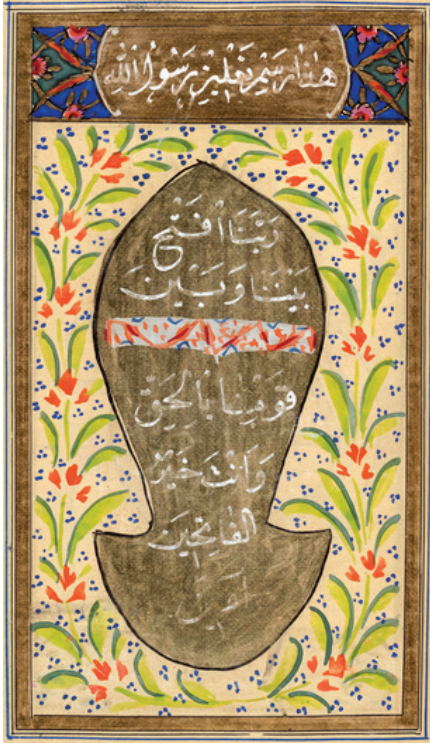 هذا رسم نعلين رسول الله
رَبَّنَا افْتَحْ
بَيْنَنَا وَبَيْنَ
قَوْمِنَا بِالْحَقِّ
وَاَنْتَ خَيْرُ
الفَاتِحِينَ